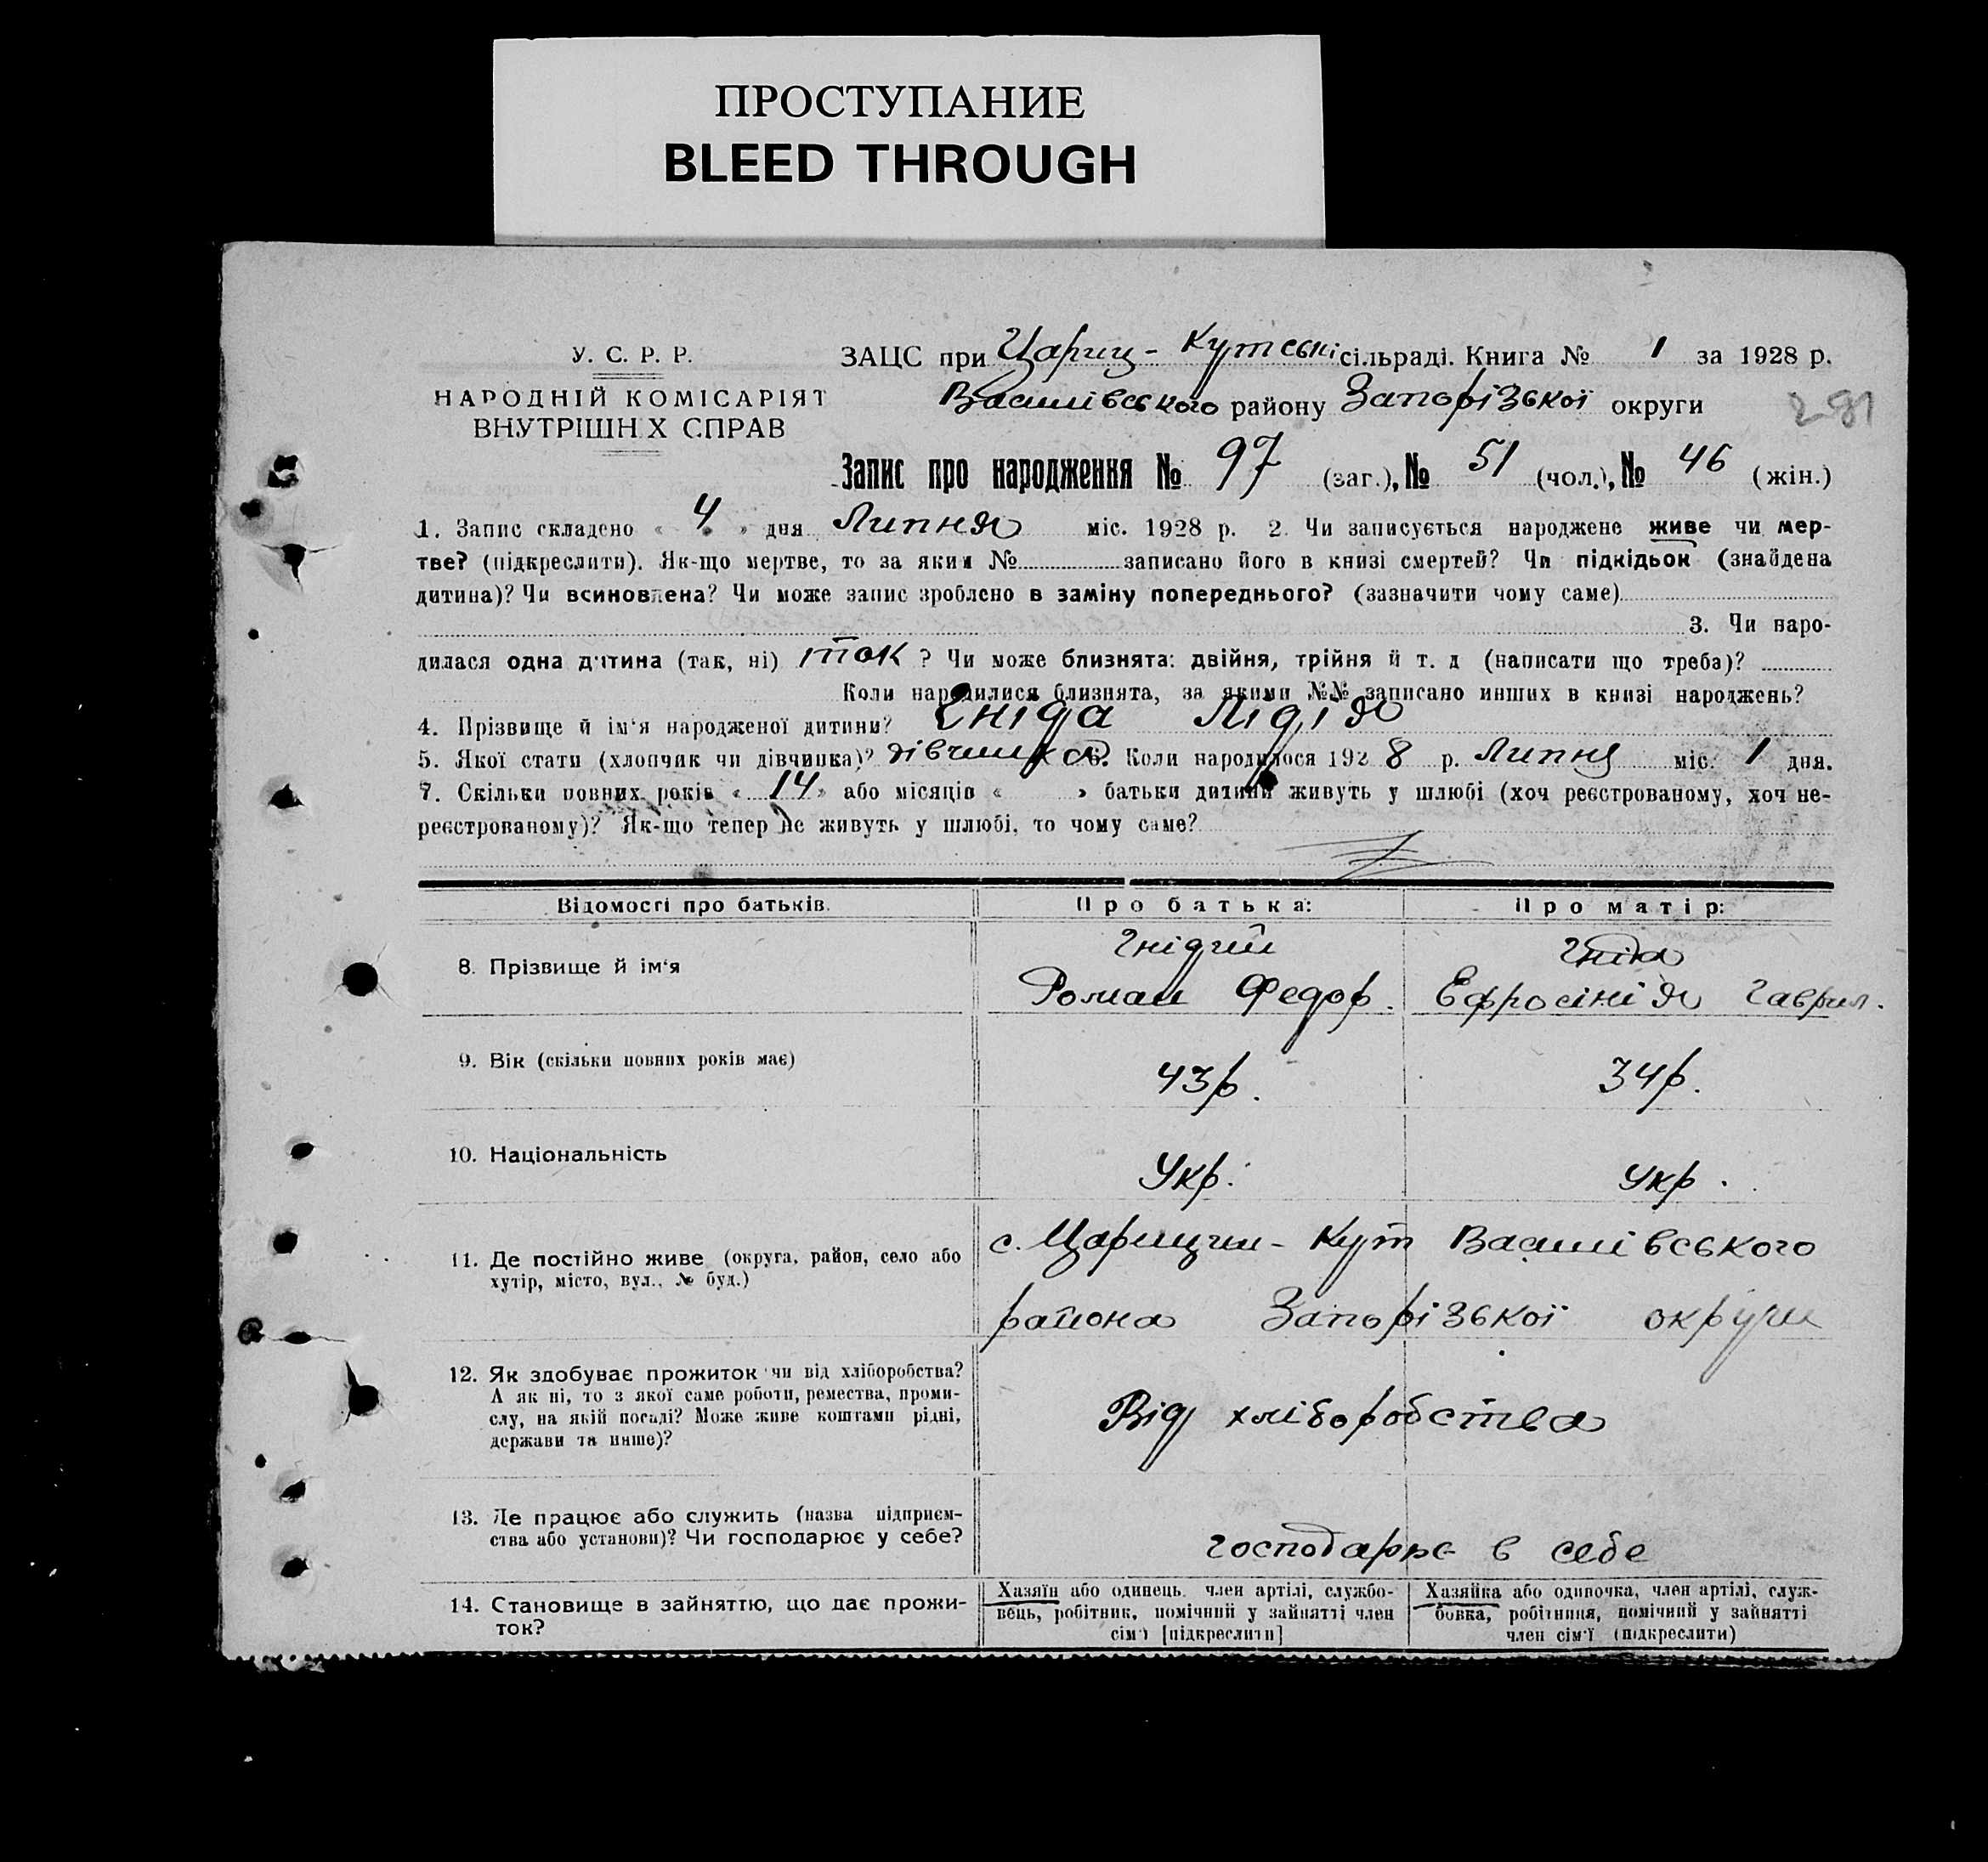 ПРОСТУПАНИЕ
BLEED THROUGH
У. С. Р. Р.
НАРОДНІЙ КОМІСАРІЯТ
ВНУТРІШН Х СПРАВ
ЗАЦС при Цариц- Кутській сільраді. Книга № 1 за 1928 р.
Василівського району Запорізької округи
281
Запис про народження № 97 (заг.), № 51 (чол.), № 46 (жін.)
1. Запис складено « 4 » дня Липня міс. 1928 р. 2. Чи записується народжене живе чи мер-
тве? (підкреслити). Як-що мертве, то за яким № записано його в книзі смертей? Чи підкідьок (знайдена
дитина)? Чи всиновлена? Чи може запис зроблено в заміну попереднього? (зазначити чому саме)
3. Чи наро-
дилася одна дитина (так, ні) так ? Чи може близнята: двійня, трійня й т. д (написати що треба)?
Коли народилися близнята, за якими №№ записано инших в книзі народжень?
4. Прізвище й ім'я народженої дитини? Гніда Лідія
5. Якої стати (хлопчик чи дівчинка)? дівчинка 6. Коли народилося 1928 р. Липня міс. 1 дня.
7. Скільки повних років « 14 » або місяців « » батьки дитини живуть у шлюбі (хоч реєстрованому, хоч не-
реєстрованому)? Як-що тепер не живуть у шлюбі, то чому саме?
Відомості про батьків. Про батька: Про матір:
8. Прізвище й ім'я
Гнідий Гніда
Роман Федор. Ефросінія Гаврил.
9. Вік (скільки повних років має) 43р. 34р.
10. Національність Укр. Укр.
11. Де постійно живе (округа, район, село або
хутір, місто, вул., № буд.)
с. Царицин- Кут Василівського
района Запорізької округи
12. Як здобуває прожиток чи від хліборобства?
А як ні, то з якої саме роботи, ремества, проми-
слу, на якій посаді? Може живе коштами рідні,
держави та инше)?
Від хліборобства
13. Де працює або служить (назва підприєм-
ства або установи)? Чи господарює у себе?
господарює в себе
14. Становище в зайняттю, що дає прожи-
ток?
Хазяїн або одинець, член артілі, службо-
вець, робітник, помічний у зайнятті член
сім'ї [підкреслити]
Хазяйка або одиночка, член артілі, служ-
бовка, робітниця, помічний у зайнятті
член сім'ї (підкреслити)